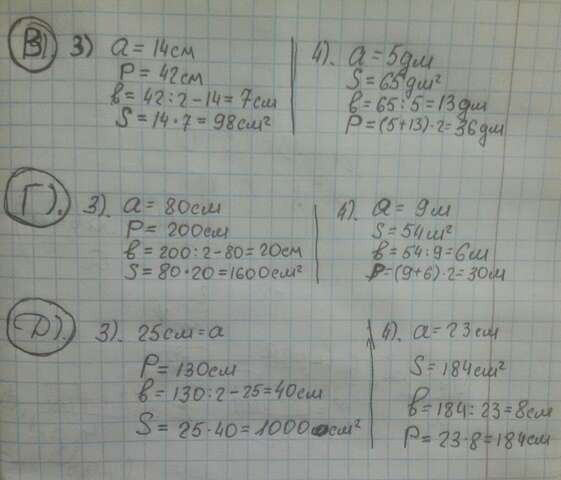 В). 3) a = 14см
P = 42см
b = 42:2-14 = 7см
S = 14·7 = 98см²
4). a = 5дм
S = 65дм²
b = 65:5 = 13дм
P = (5+13)·2 = 36дм
Г). 3). a = 80см
P = 200см
b = 200:2-80 = 20см
S = 80·20 = 1600см²
4). a = 9м
S = 54м²
b = 54:9 = 6м
P = (9+6)·2 = 30м
Д). 3). 25см = a
P = 130см
b = 130:2-25 = 40см
S = 25·40 = 1000см²
4). a = 23см
S = 184см²
b = 184:23 = 8см
P = 23·8 = 184см